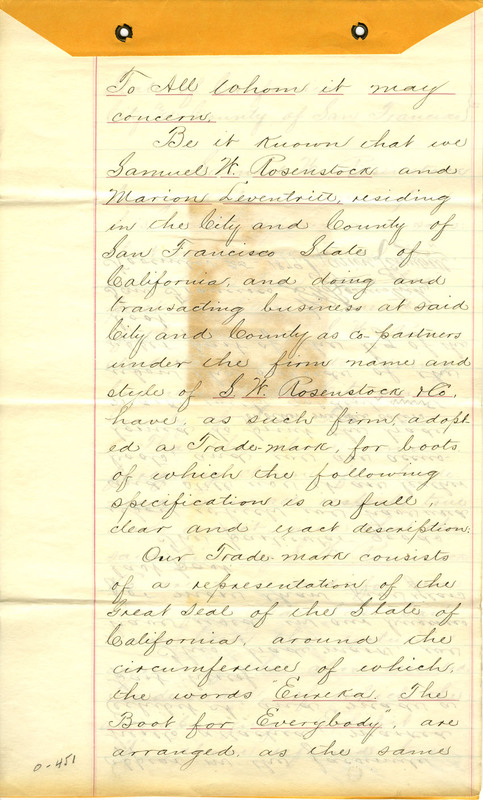 To All Whom it may
concern.
Be it known that we
Samuel W. Rosenstock and
Marion Leventritt, residing
in the City and County of
San Francisco State of
California, and doing and
transacting business at said
City and County as co-partners
under the firm name and
style of S. W. Rosenstock & Co.
have, as such firm, adopt
ed a Trade-mark, for boots
of which the following
specification is a full,
clear and exact description:
Our Trade-mark consists
of a representation of the
Great Seal of the State of
California, around the
circumference of which,
the words "Eureka. The
Boot for Everybody", are
arranged, as the same
0-451